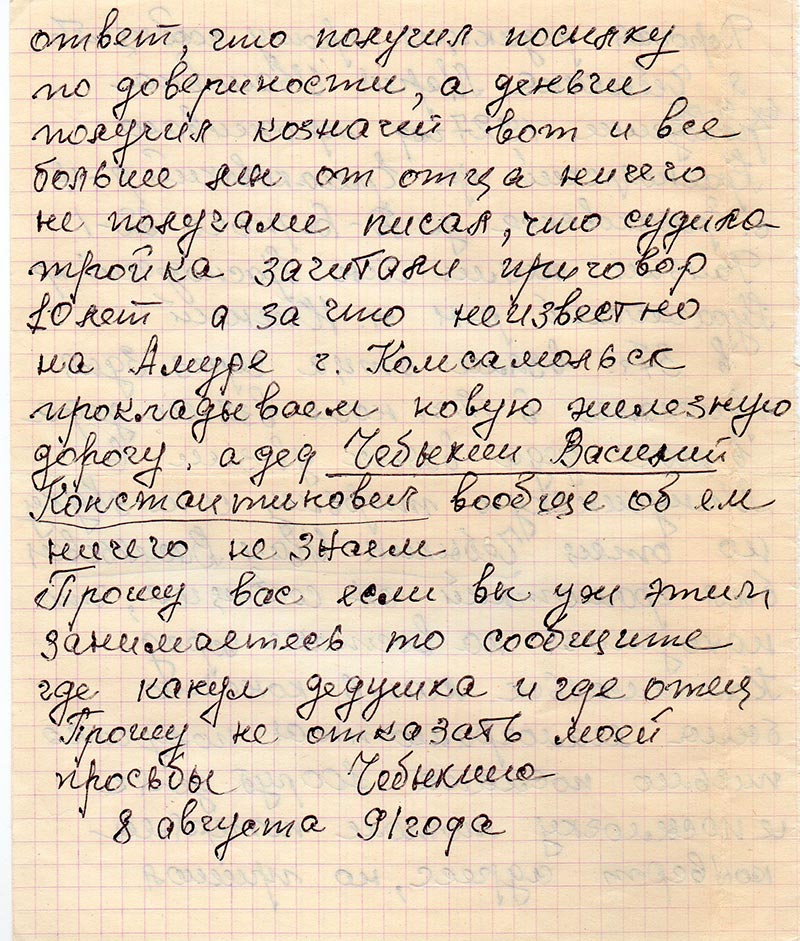 ответ, что получил посилку
по довериности, а деньги
получил козначий вот и все
больше мы от отца ничего
не получали писал, что судила
тройка зачитали приговор
10 лет а за что неизвестно
на Амуре г. Комсамольск
прокладываем новую железную
дорогу, а дед Чебыкин Василий
Констаитинович вообще об ем
ничего не знаем
Прошу вас если вы уж этим
занимаетесь то сообщите
где канул дедушка и где отец
Прошу не отказать моей
просьбы Чебыкина
8 августа 91 года